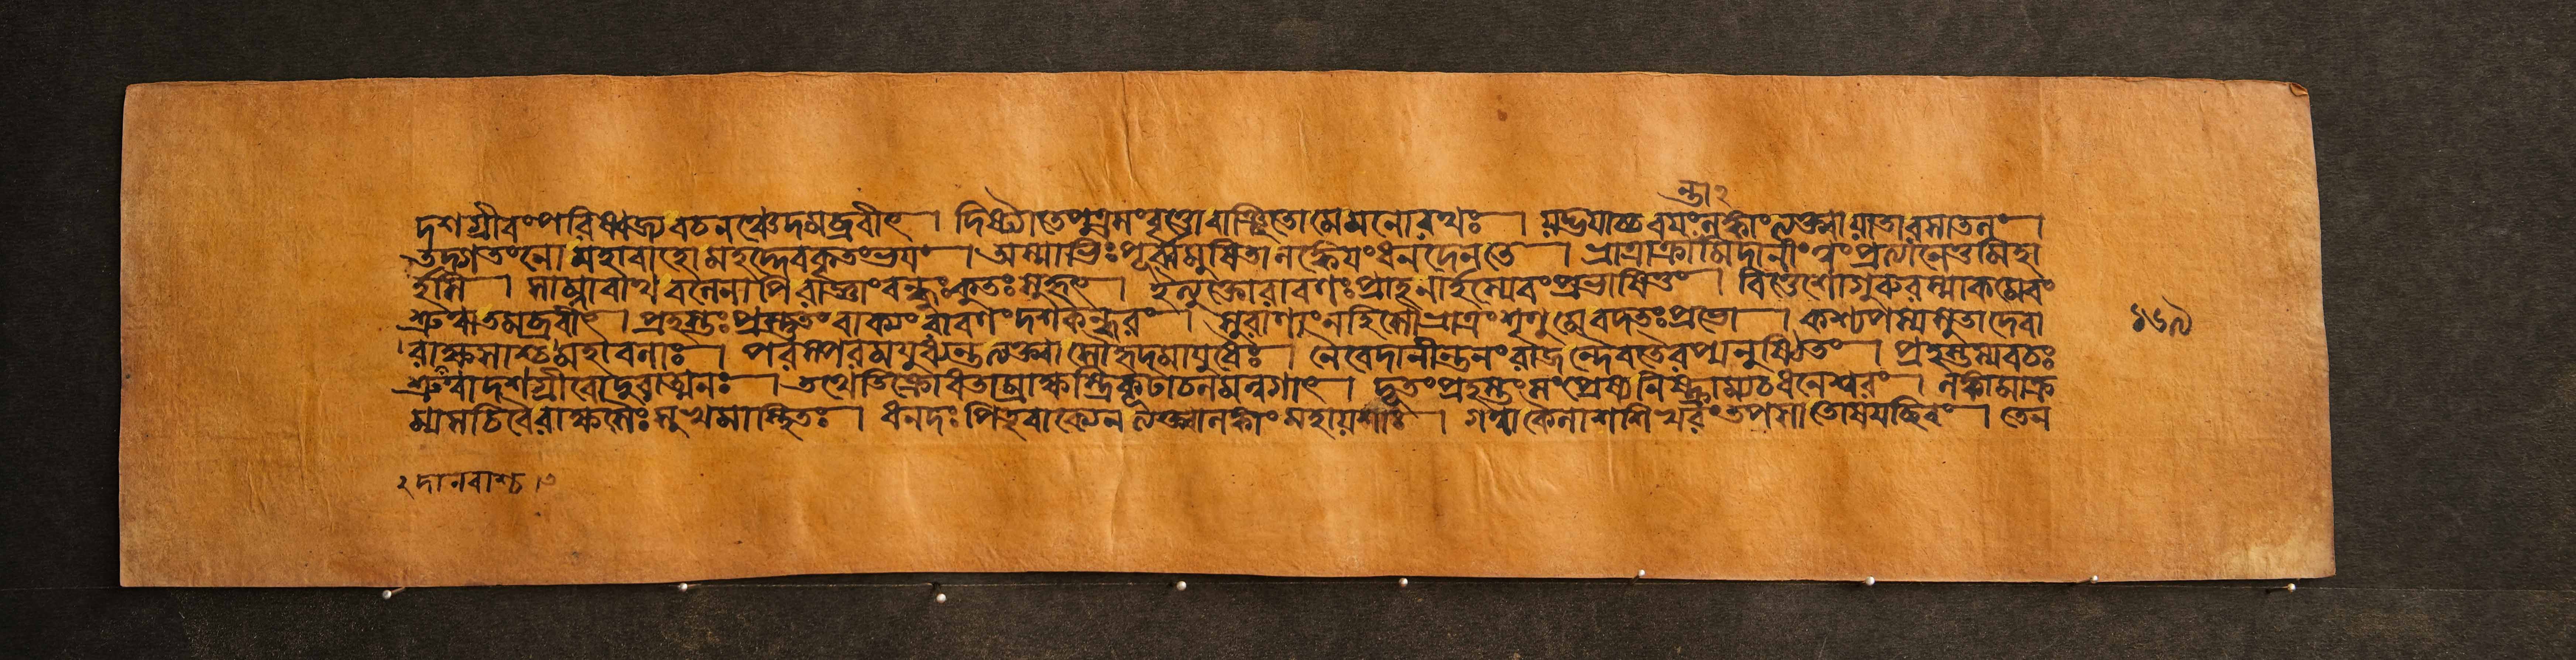 ন্তা২
দশগ্রীবং পরিষ্বজ্য বচনঞ্চেদমব্রবীৎ । দিষ্ট্যা তে পুত্র সংবৃত্তো বাঞ্ছিতো মে মনোরথঃ । যদ্ভয়াচ্চ বয়ং লঙ্কাং ত্যক্ত্বা যাতা রসাতলং ।
তদ্গতং নো মহাবাহো মহদ্দেবকৃতং ভয়ং । অস্মাভিঃ পূর্ব্বমুষিতা লঙ্কেয়ং ধনদেন তে । ভ্রাত্রাক্রামিদানীং ত্বং প্রত্যানেতুমিহা
র্হসি । সাম্না বাথ বলেনাপি রাজ্ঞাং বন্ধুঃ কুতঃ সুহৃৎ । ইত্যুক্তো রাবণঃ প্রাহ নার্হস্যেবং প্রভাষিতুং । বিত্তেশো গুরুরস্মাকমেবং
শ্রুত্বা তমব্রবীৎ । প্রহস্তঃ প্রস্তুতং বাক্যং রাবণং দশকন্ধরং । সুরাণাং নহি সৌভ্রাত্রং শৃণু মে বদতঃ প্রভো । কশ্যপস্য সুতা দেবা
১৬৯
রাক্ষসাশ্চ মহাবলাঃ । পরস্পরমযুধ্যন্ত ত্যক্ত্বা সৌহৃদমায়ুধৈঃ । নৈবেদানীন্তনং রাজন্দেববৈরমনুষ্ঠিতং । প্রহস্তস্য বচঃ
শ্রুত্বা দশগ্রীবো দুরাত্মনঃ । তথেতি ক্রোধতাম্রাক্ষস্ত্রিকূটাচলমন্বগাৎ । দূতং প্রহস্তং সংপ্রেষ্য নিষ্ক্রাম্যাচ ধনেশ্বরং । লঙ্কামাক্র
ম্য সচিবৈ রাক্ষসৈঃ সুখমাস্থিতঃ । ধনদঃ পিতৃবাক্যেন ত্যক্ত্বা লঙ্কাং মহায়শাঃ । গত্বা কৈলাশশিখরং তপসাতোষয়চ্ছিবং । তেন
২ দানবাশ্চ । ৩